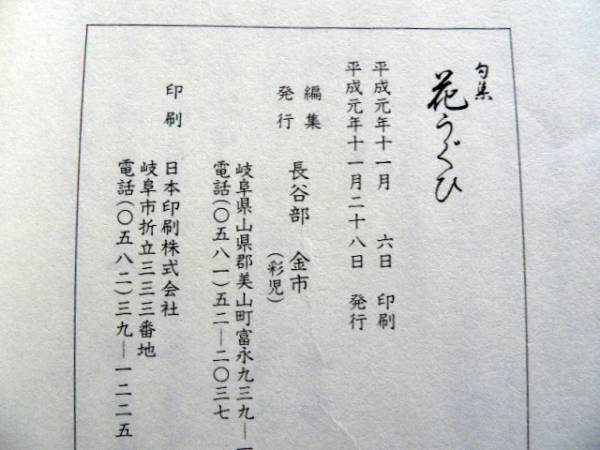 句集
花うぐひ
平成元年十一月 六日 印刷
平成元年十一月二十八日 発行
編集
発行 長谷部 金市
(彩児)
岐阜県山県郡美山町富永九三九―
電話(〇五八一)五二―二〇三七
印刷 日本印刷株式会社
岐阜市折立三三三番地
電話(〇五八二)三九―一二二五